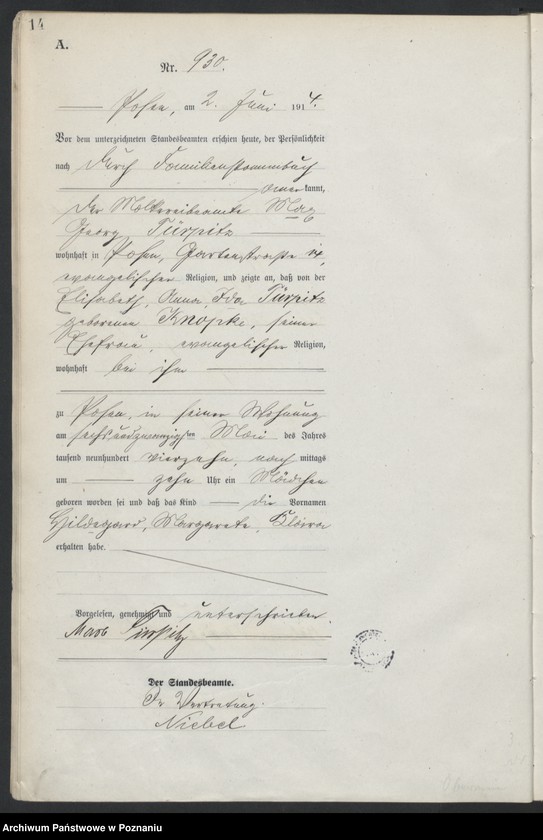 14
A.
Nr. 930.
Posen, am 2. Juni 1914.
Vor dem unterzeichneten Standesbeamten erschien heute, der Persönlichkeit
nach durch Familienstammbuch
kannt,
der Molkereibeamte Max
Georg Türpitz
wohnhaft in Posen, Gartenstraße
evangelischer Religion, und zeigte an, daß von der
Elisabeth, Anna, Ida Türpitz
geborenen Knopke, seiner
Ehefrau, evangelischer Religion,
wohnhaft bei ihm
zu Posen, in seiner Wohnung
am sechsundzwanzigsten Mai des Jahres
tausend neunhundert vierzehn, nachmittags
um zehn Uhr ein Mädchen
geboren worden sei und daß das Kind die Vornamen
Hildegard, Margarete, Klara
erhalten habe.
Vorgelesen, genehmigt und unterschrieben.
Max Türpitz
Der Standesbeamte.
In Vertretung.
Niebel
Archiwum Państwowe w Poznaniu